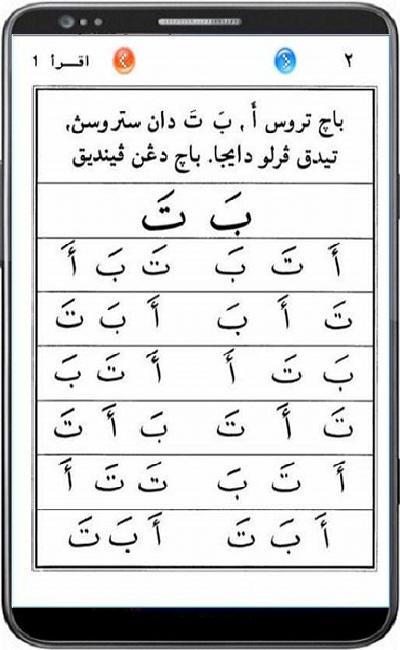 ٢ اقرأ 1
باچ تروس أَ , بَ تَ دان ستروسڽ,
تيدق ڤرلو دايجا. باچ دڠن ڤينديق
بَ تَ
أَ تَ بَ تَ بَ أَ
تَ أَ بَ أَ بَ تَ
بَ تَ أَ أَ تَ بَ
تَ أَ تَ بَ أَ تَ
أَ تَ بَ تَ تَ أَ
أَ بَ تَ أَ بَ تَ